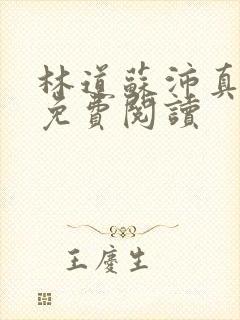 林道蘇沛真
免費閱讀
王慶生